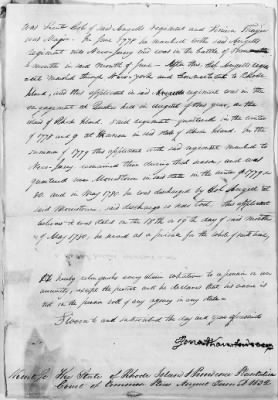 was Lieut Col of said Angells regiment and Simeon Thayer
was Major. In June 1778 he marched with said Angells
regiment into New-Jersey and was in the battle of Monmouth
in said month of June - After this Col Angells regi-
ment marched through New-York and Connecticut to Rhode
Island, and this applicant in said Angells regiment was in the
engagement at Quaker hill in August of this year, on the
island of Rhode Island. said regiment quartered in the winter
of 1778 and 9 at Warren in said state of Rhode Island. In the
summer of 1779 this applicant with said regiment marched to
New-Jersey remained there during that season, and was
quartered near Morristown in said state in the winter of 1779 &
80. and in May 1780 he was discharged by Col Angell at
said Morristown, said discharge is now lost. This applicant
believes it was dated on the 18th or 19th day of said month
of May 1780, he served as a private for the whole of said time,
He hereby relinquishes every claim whatever to a pension or an
annuity, except the present and he declares that his name is
not on the pension roll of any agency in any state
Sworn to and subscribed the day and year aforesaid
Jonathan
The State of Rhode Island & Providence Plantations
Court of Common Pleas August Term AD 1832